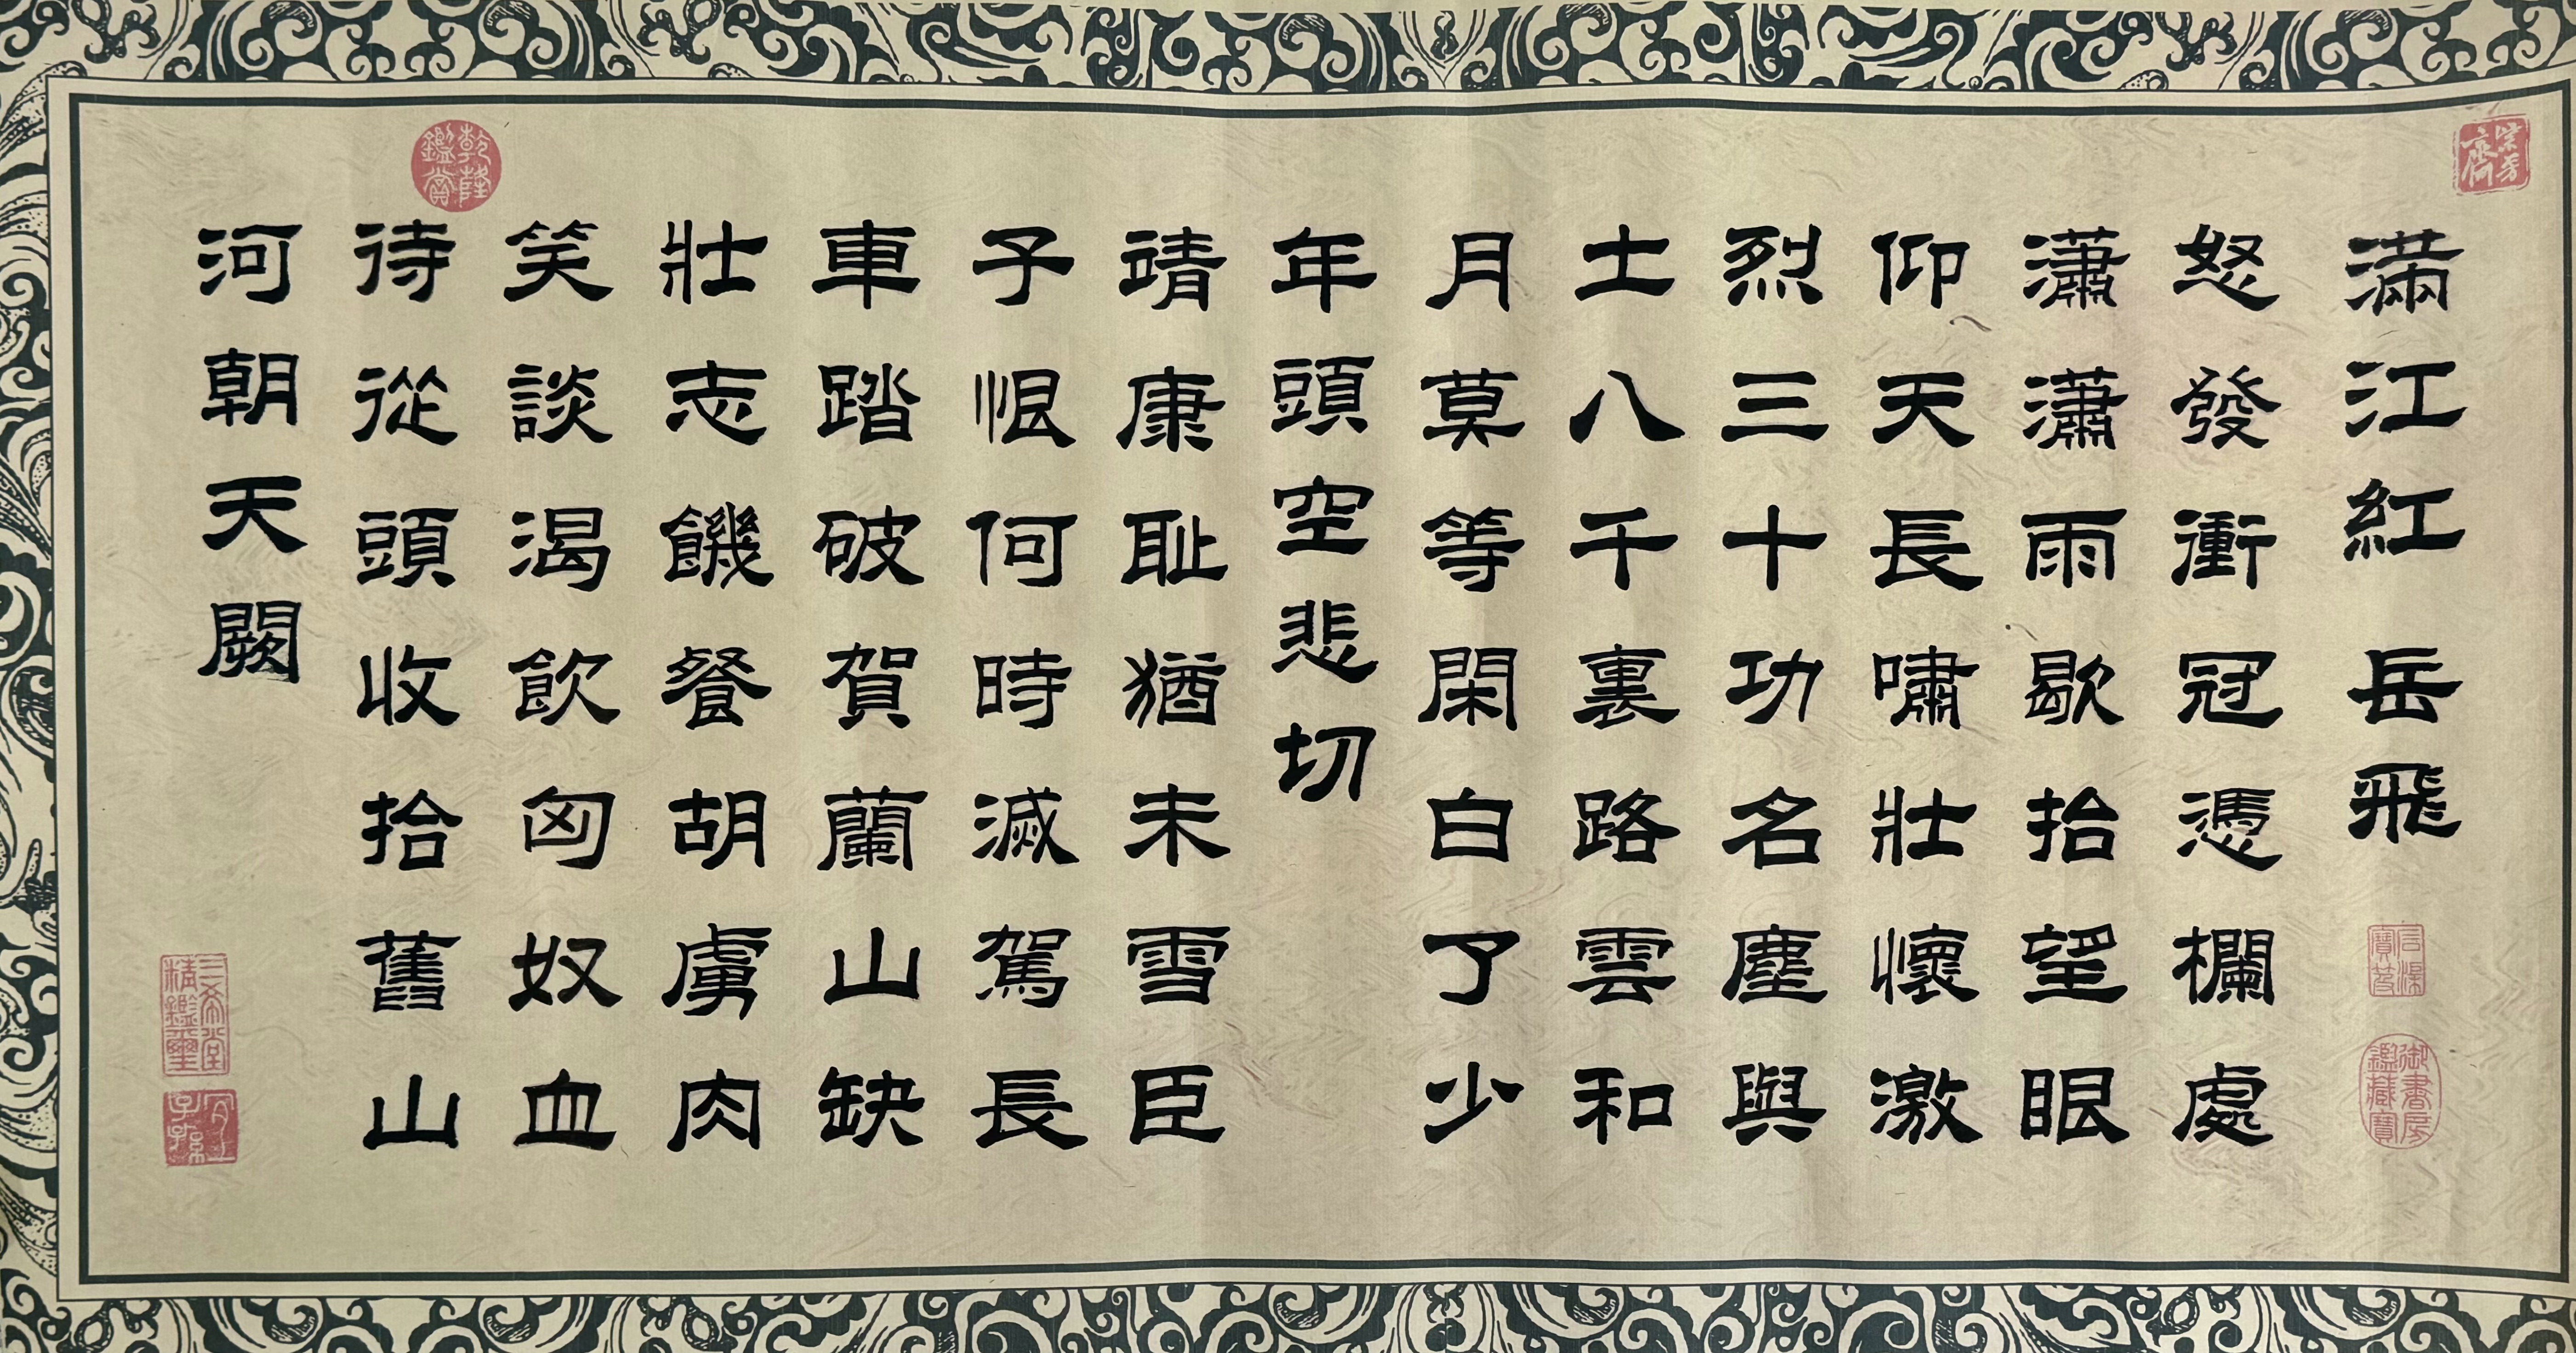 滿江紅 岳飛
怒發衝冠憑欄處
瀟瀟雨歇抬望眼
仰天長嘯壯懷激
烈三十功名塵與
土八千裏路雲和
月莫等閑白了少
年頭空悲切
靖康恥猶未雪臣
子恨何時滅駕長
車踏破賀蘭山缺
壯志饑餐胡虜肉
笑談渴飲匈奴血
待從頭收拾舊山
河朝天闕
乾隆鑑賞
三希堂精鑑璽
宜子孫
御書房鑑藏寶